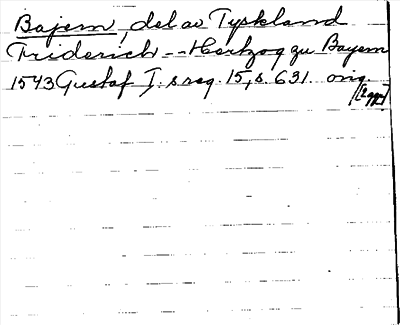 Bajern, del av Tyskland
Friderich -- Hertzog zu Bayern
1543 Gustaf I:s reg. 15, s. 631. orig.
[2 ggr]